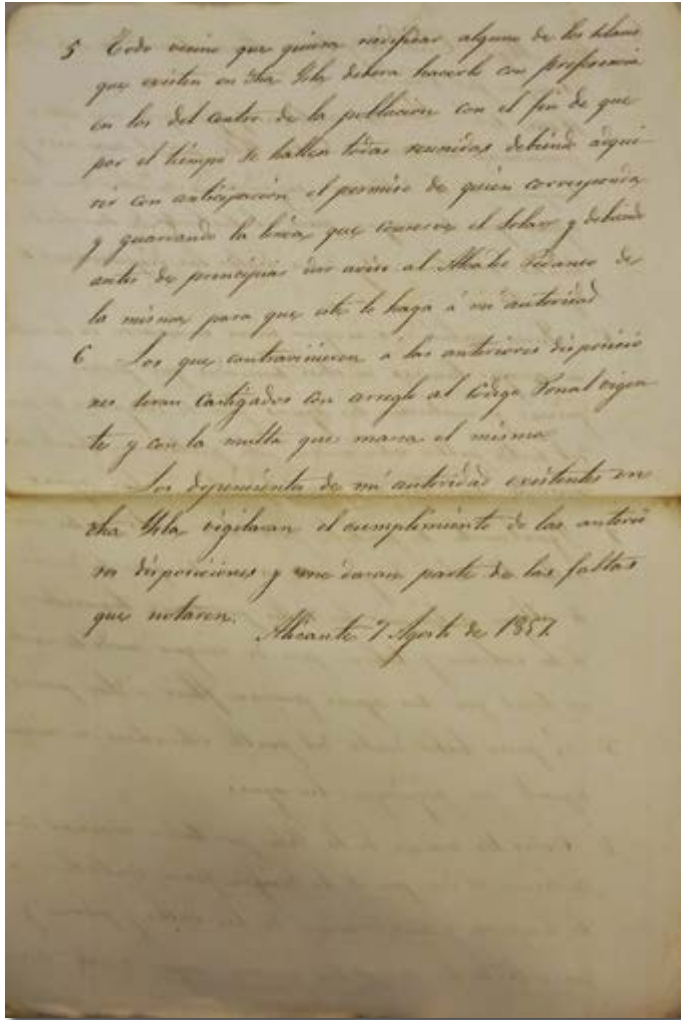 5 Todo vecino que quiera reedificar alguno de los solares
que existen en dha Ysla debera hacerlo con preferencia
en los del centro de la poblacion con el fin de que
por el tiempo se hallen todas reunidas debiendo adqui
rir con anticipacion el permiso de quien corresponda
y guardando la linea que conserva el solar y debiendo
antes de principiar dar aviso al Alcalde Pedaneo de
la misma para que este lo haga á mi autoridad
6 Los que contravinieren á las anteriores disposicio
nes seran castigados con arreglo al Codigo Penal vigen
te y con la multa que marca el mismo
Los dependientes de mi autoridad existentes en
dha Ysla vigilaran el cumplimiento de las anterio
res disposiciones y me daran parte de las faltas
que notaren.
Alicante 7 Agosto de 1857.